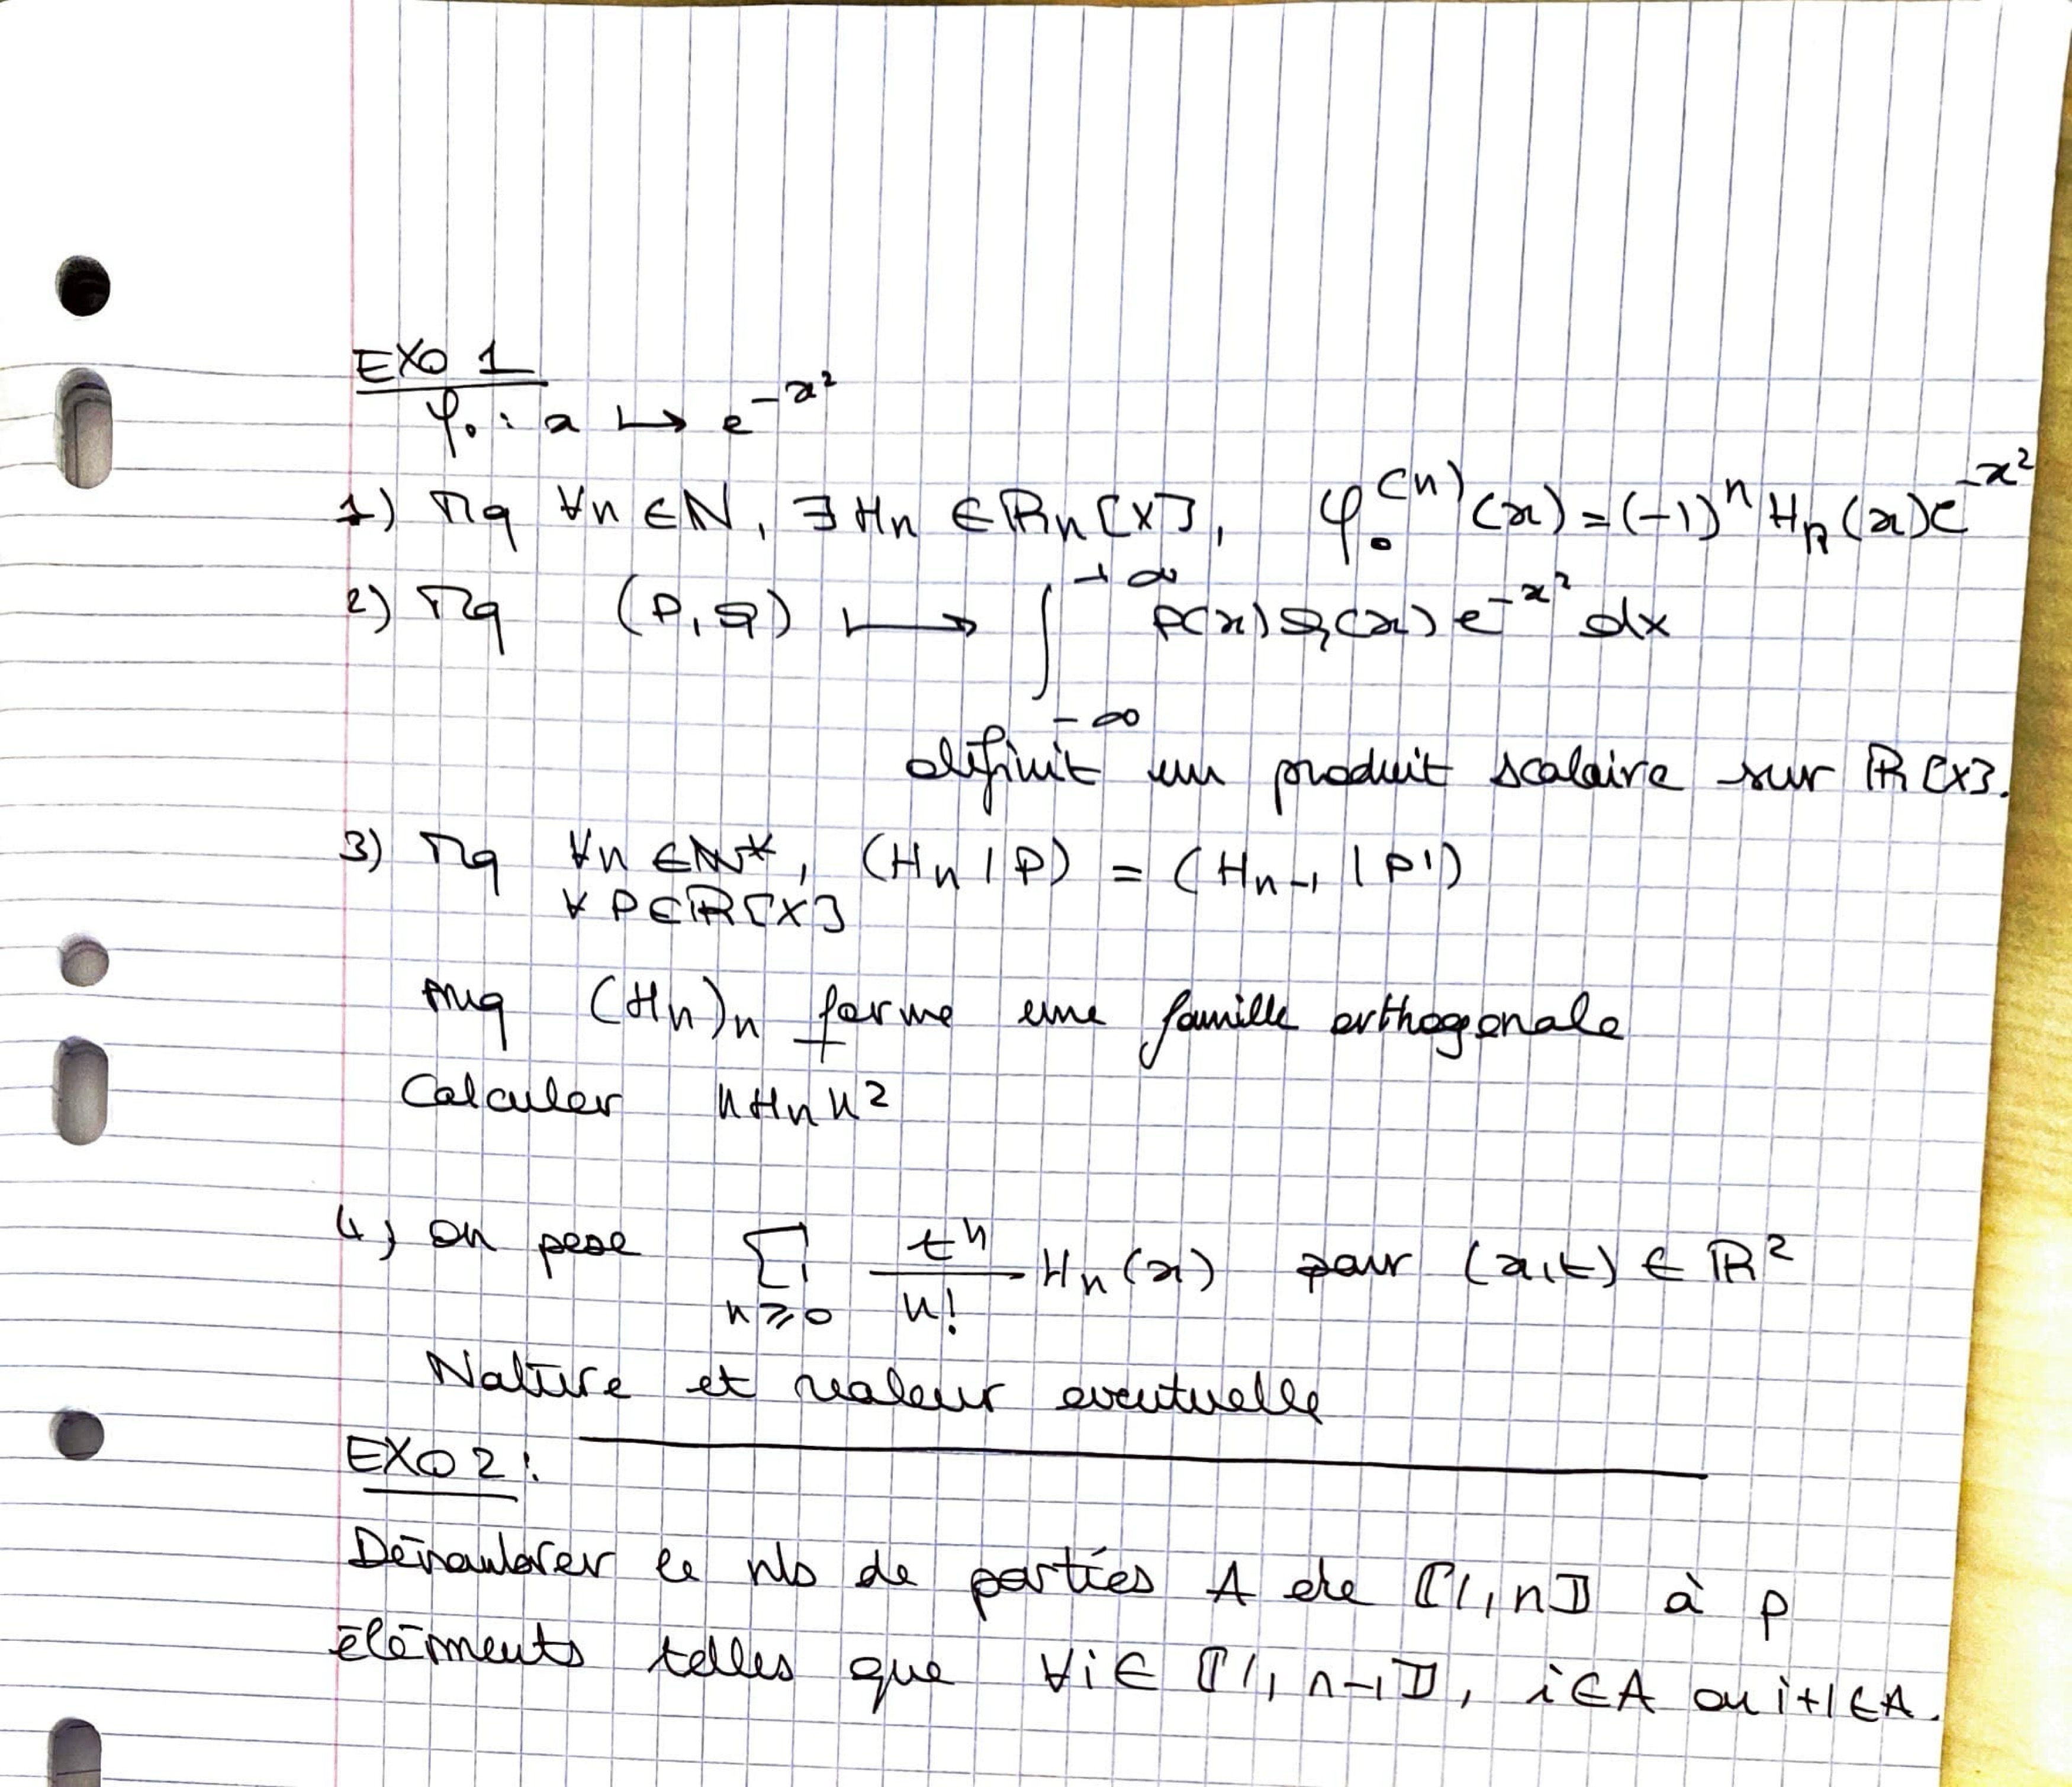 EXO 1
φ₀ : x ↦ e^{-x²}
1) Mq ∀n ∈ ℕ, ∃ Hn ∈ ℝn[X], φ₀^{(n)}(x) = (-1)^n Hn(x) e^{-x²}
2) Mq (P, Q) ⟼ ∫_{-∞}^{+∞} P(x) Q(x) e^{-x²} dx
définit un produit scalaire sur ℝ[X].
3) Mq ∀n ∈ ℕ*, (Hn | P) = (Hn-1 | P')
∀ P ∈ ℝ[X]
mq (Hn)n forme une famille orthogonale
Calculer ||Hn||²
4) On pose Σ_{n≥0} t^n/n! Hn(x) pour (x,t) ∈ ℝ²
Nature et valeur eventuelle
EXO 2 :
Dénombrer le nb de parties A de ⟦1, n⟧ à p
éléments telles que ∀i ∈ ⟦1, n-1⟧, i ∈ A ou i+1 ∈ A.